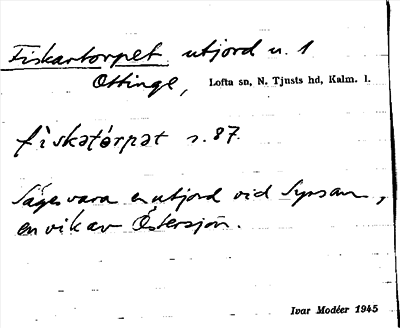 Fiskartorpet utjord u. 1
Ottinge, Lofta sn, N. Tjusts hd, Kalm. l.
fìskatårpət s. 87.
Säges vara en utjord vid Syrsan,
en vik av Östersjön.
Ivar Modéer 1945